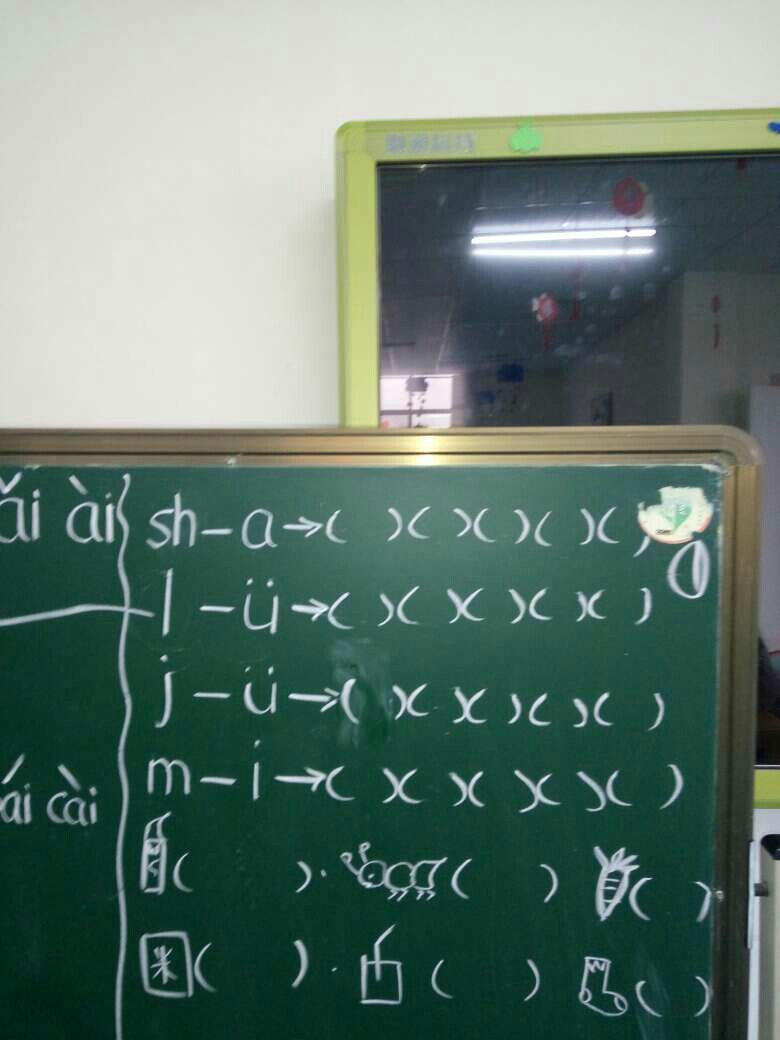 ǎi ài
sh-a→( )( )( )( )( )
l-ü→( )( )( )( )( )
j-ü→( )( )( )( )( )
m-i→( )( )( )( )( )
ái cài
( ). ( ) ( )
米( ). ( ) ( )